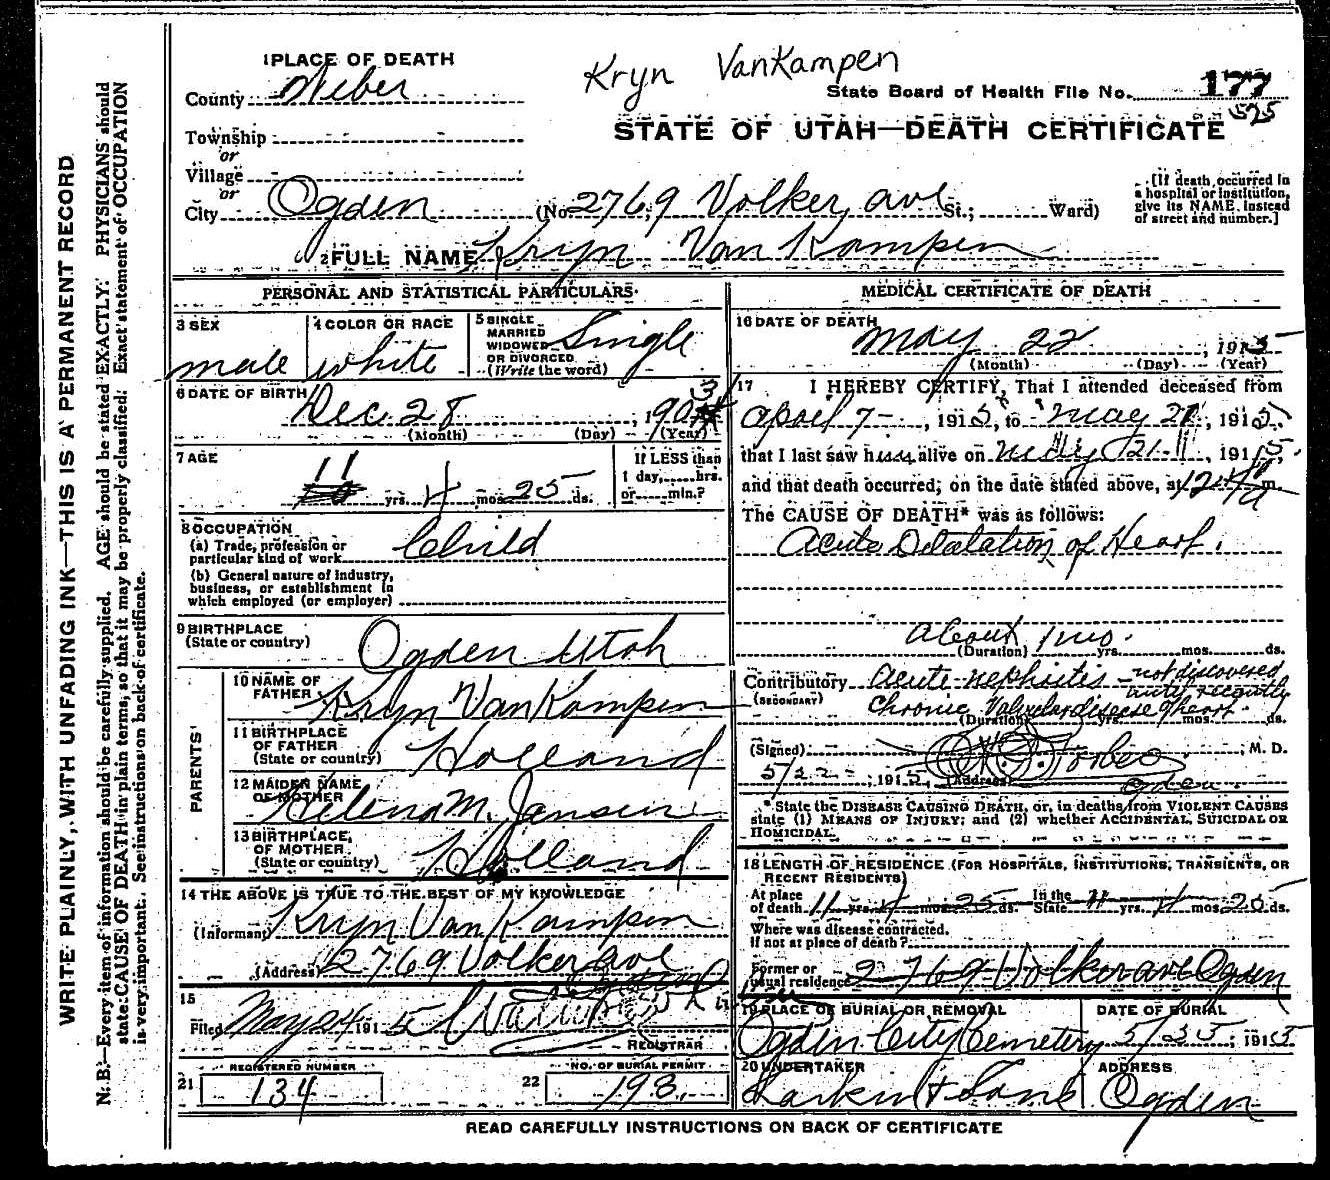 WRITE PLAINLY, WITH UNFADING INK—THIS IS A PERMANENT RECORD
N. B.—Every item of information should be carefully supplied. AGE should be stated EXACTLY. PHYSICIANS should
state CAUSE OF DEATH in plain terms, so that it may be properly classified. Exact statement of OCCUPATION
is very important. See instructions on back of certificate.
1 PLACE OF DEATH
Kryn VanKampen
County Weber
State Board of Health File No. 177
525
Township
STATE OF UTAH—DEATH CERTIFICATE
or
Village
or
City Ogden (No. 2769 Volker ave St.; Ward)
[If death occurred in
a hospital or institution,
give its NAME instead
of street and number.]
2 FULL NAME Kryn Van Kampen
PERSONAL AND STATISTICAL PARTICULARS
3 SEX male
4 COLOR OR RACE white
5 SINGLE
MARRIED
WIDOWED
OR DIVORCED
(Write the word) Single
6 DATE OF BIRTH Dec. 28, 1903
(Month) (Day) (Year)
7 AGE 11 yrs. 4 mos. 25 ds.
If LESS than
1 day,......hrs.
or......min.?
8 OCCUPATION
(a) Trade, profession or
particular kind of work Child
(b) General nature of industry,
business, or establishment in
which employed (or employer)
9 BIRTHPLACE
(State or country) Ogden Utah
PARENTS
10 NAME OF
FATHER Kryn Van Kampen
11 BIRTHPLACE
OF FATHER
(State or country) Holland
12 MAIDEN NAME
OF MOTHER Helena M. Jansen
13 BIRTHPLACE
OF MOTHER
(State or country) Holland
14 THE ABOVE IS TRUE TO THE BEST OF MY KNOWLEDGE
(Informant) Kryn Van Kampen
(Address) 2769 Volker ave
Ogden
15
Filed May 24 1915
REGISTRAR
REGISTERED NUMBER
21 134
NO. OF BURIAL PERMIT
22 193.
MEDICAL CERTIFICATE OF DEATH
16 DATE OF DEATH
May 22, 1915
(Month) (Day) (Year)
17 I HEREBY CERTIFY, That I attended deceased from
April 7, 1915, to May 21, 1915,
that I last saw him alive on May 21, 1915,
and that death occurred, on the date stated above, at 12 m.
The CAUSE OF DEATH* was as follows:
Acute Dilatation of Heart.
About 1 mo.
(Duration) yrs. mos. ds.
Contributory Acute nephritis - not discovered
until recently
(SECONDARY) Chronic Valvular disease of heart.
(Duration) yrs. mos. ds.
(Signed) M. D.
5/22, 1915 (Address) Ogden
* State the DISEASE CAUSING DEATH, or, in deaths from VIOLENT CAUSES
state (1) MEANS OF INJURY; and (2) whether ACCIDENTAL, SUICIDAL OR
HOMICIDAL.
18 LENGTH OF RESIDENCE (FOR HOSPITALS, INSTITUTIONS, TRANSIENTS, OR
RECENT RESIDENTS)
At place
of death 11 yrs. 4 mos. 25 ds. In the
State 11 yrs. 4 mos. 25 ds.
Where was disease contracted.
If not at place of death?
Former or
usual residence 2769 Volker ave Ogden
19 PLACE OF BURIAL OR REMOVAL
Ogden City Cemetery
DATE OF BURIAL
5/25, 1915
20 UNDERTAKER
Larkin & Sons
ADDRESS
Ogden
READ CAREFULLY INSTRUCTIONS ON BACK OF CERTIFICATE